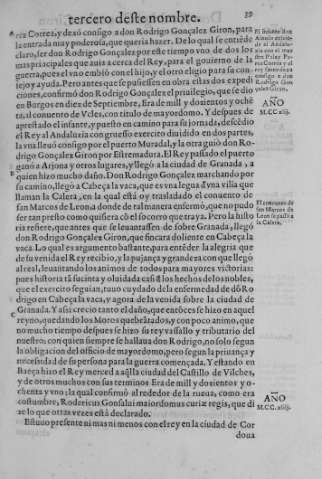 tercero deste nombre. 39
rez Correa, y dexó consigo a don Rodrigo Gonçalez Giron, para
la entrada muy poderosa, que queria hazer. De lo qual se entiēde
claro, ser don Rodrigo Gonçalez por este tiempo vno de los dos
mas principales que auia a cerca del Rey, para el gouierno de la
guerra, pues el vno embió con el hijo, y el otro eligio para su con-
sejo y ayuda. Pero antes que se pusiessen en obra estas dos expedi
ciones, confirmó don Rodrigo Gonçalez el priuilegio, que se dio
en Burgos en diez de Septiembre, Era de mill y dozientos y ochē
ta, al conuento de Vcles, con titulo de mayordomo. Y despues de
aprestado el infante, y puesto en camino para su jornada, descēdio
el Rey al Andaluzia con gruesso exercito diuidido en dos partes,
la vna lleuó consigo por el puerto Muradal, y la otra guió don Ro
drigo Gonçalez Giron por Estremadura. El Rey passado el puerto
ganó a Arjona y otros lugares, y llegó a la ciudad de Granada, a
quien hizo mucho daño. Don Rodrigo Gonçalez marchando por
su camino, llegó a Cabeça la vaca, que es vna legua d'vna villa que
llaman la Calera, en la qual está oy trasladado el conuento de
san Marcos de Leon: a donde de tal manera enfermó, que no pudo
ser tan presto como quisiera cō el socorro que traya. Pero la histo
ria refiere, que antes que se leuantassen de sobre Granada, llegó
don Rodrigo Gonçalez Giron, que fincara doliente en Cabeça la
vaca. Lo qual es argumento bastante, para entēder la alegria que
de su venida el Rey recibio, y la pujança y grandeza con que llegó
al real, leuantando los animos de todos para mayores victorias:
pues historia tā sucinta y oluidada casi d los hechos de los nobles,
que el exercito seguian, tuuo cuydado de la enfermedad de dō Ro
drigo en Cabeça la vaca, y agora de la venida sobre la ciudad de
Granada. Y assi crecio tanto el daño, que entōces se hizo en aquel
reyno, quedando los Moros quebrātados, y con poco animo, que
no mucho tiempo despues se hizo su rey vassallo y tributario del
nuestro: con quien siempre se hallaua don Rodrigo, no solo segun
la obligacion del officio de mayordomo, pero segun la priuança y
necessidad de su persona para la guerra començada. Y estando en
Baeça hizo el Rey merced a aq̄lla ciudad del Castillo de Vilches,
y de otros muchos con sus terminos Era de mill y dozientos y o-
chenta y vno: la qual confirmó al rededor de la rueda, como era
costumbre, Rodericus Gonsalui maiordomus curiæ regis, que di
ze lo que otras vezes está declarado.
Estuuo presente ni mas ni menos con el rey en la ciudad de Cor
doua
AÑO
M.CC.xlij.
El conuento de
san Marcos de
Leon se passó a
la Calera.
AÑO
M.CC.xliij.